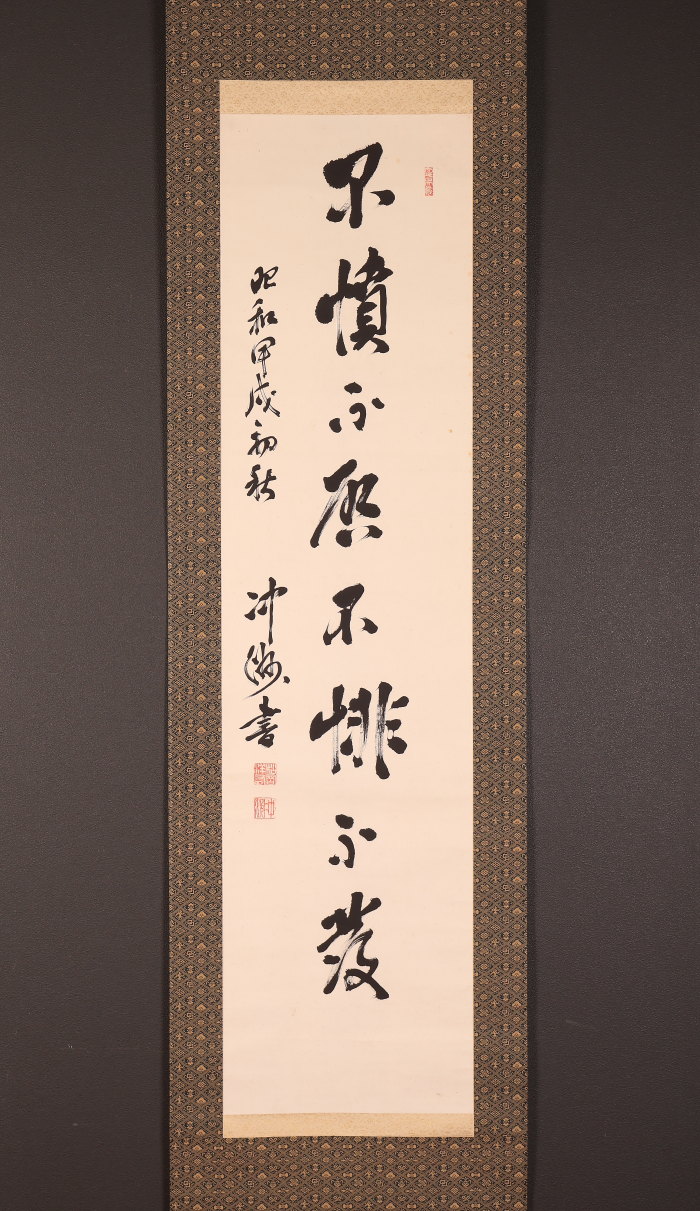 不憤不啓不悱不發
昭和甲戌初秋
冲㴠書